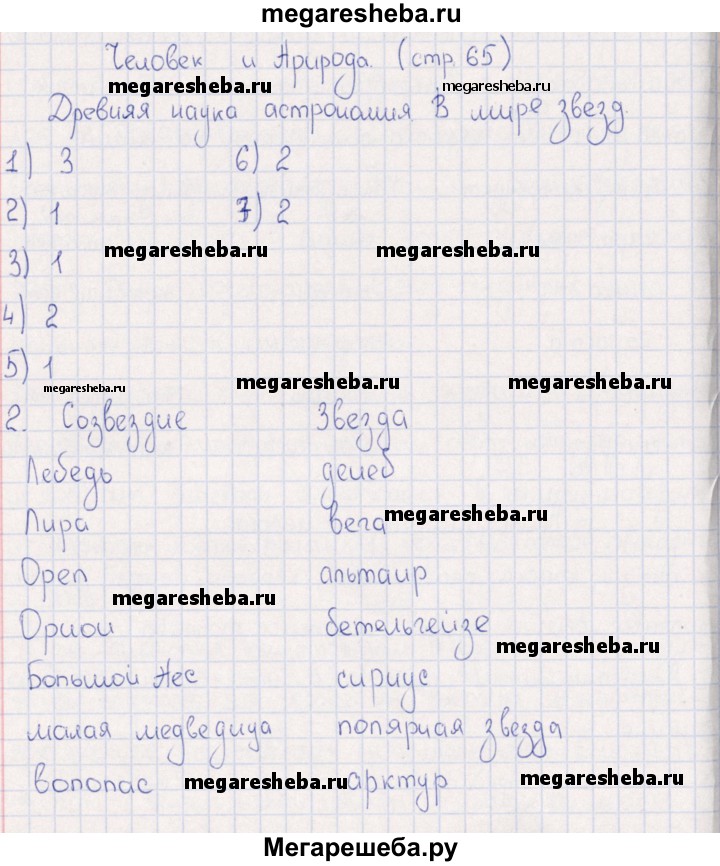 megaresheba.ru
Человек и Природа. (стр. 65)
megaresheba.ru megaresheba.ru
Древняя наука астрономия В мире звезд.
1) 3 6) 2
2) 1 7) 2
megaresheba.ru megaresheba.ru
3) 1
4) 2
5) 1
megaresheba.ru megaresheba.ru megaresheba.ru
2. Созвездие Звезда
Лебедь денеб
Лира вега megaresheba.ru
Орел альтаир
megaresheba.ru
Орион бетельгейзе
megaresheba.ru
Большой Пес сириус
малая медведица полярная звезда
волопас megaresheba.ru арктур megaresheba.ru
Мегарешеба.ру